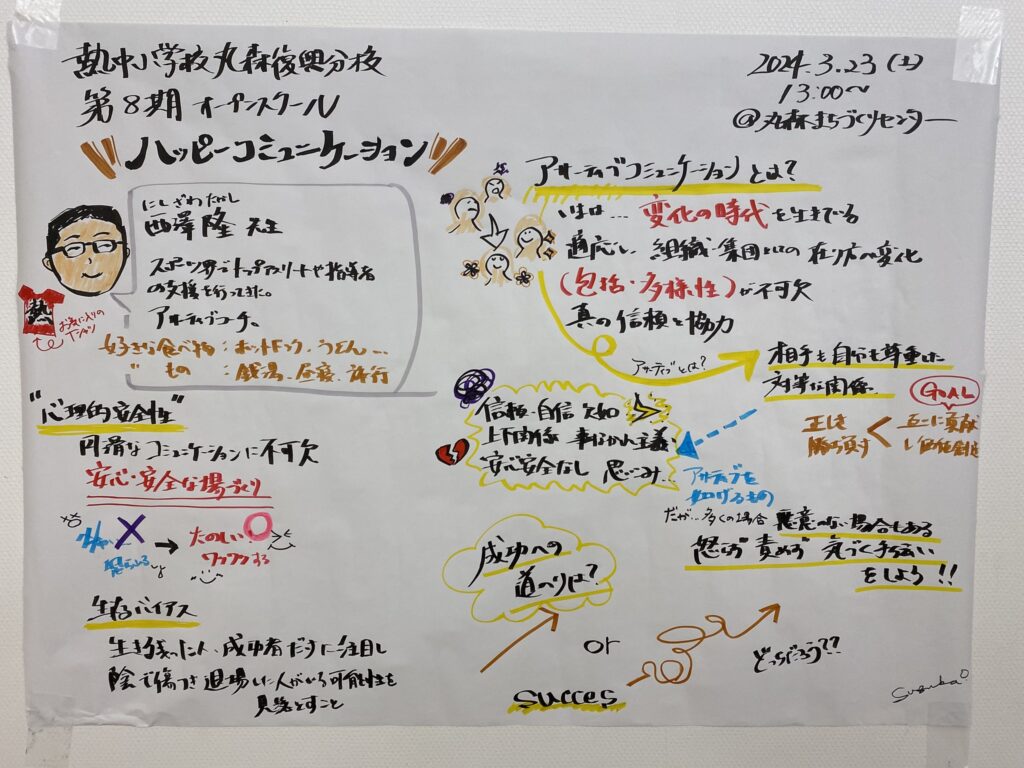 熱中小学校丸森復興分校
第8期 オープンスクール
ハッピーコミュニケーション
2024.3.23(土)
13:00〜
@丸森まちづくりセンター
にしざわたかし
西澤 隆 先生
スポーツ界でトップアスリートや指導者
の支援を行ってきた。
アサーティブコーチ。
好きな食べ物:ホットドック、うどん…
〃 もの :銭湯、昼寝、旅行
熱
お気に入りの
Tシャツ
"心理的安全性"
円滑なコミュニケーションに不可欠
安心・安全な場づくり
たのしい
ワクワクする
生存バイアス
生き残った人、成功者だけに注目し
陰で傷つき退場した人がいる可能性を
見落とすこと
アサーティブコミュニケーションとは?
いまは… 変化の時代を生きてる
適応し、組織・集団としての在り方の変化
(包括・多様性)が不可欠
真の信頼と協力
アサーティブとは?
相手も自分も尊重した
対等な関係、
GOAL
正しさ
勝ち負け
<
互いに貢献
信頼・自信 欠如
上下関係 事なかれ主義
安心安全なし 思いこみ…
アサーティブを
妨げるもの
だが…多くの場合 悪意のない場合もある
怒らず 責めず 気づく手伝い
をしよう!!
成功への
道のりは?
or
どっちだろう??
succes
Suzuka